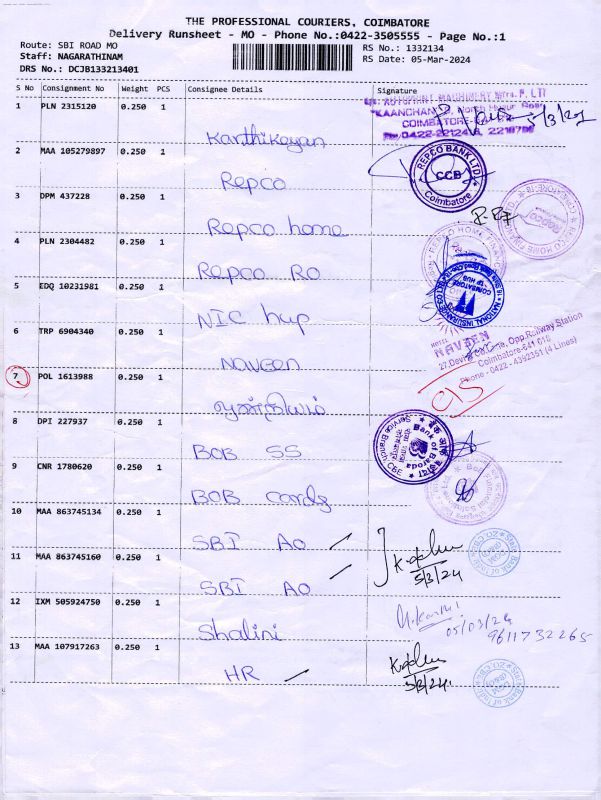 THE PROFESSIONAL COURIERS, COIMBATORE
Delivery Runsheet - MO - Phone No.:0422-3505555 - Page No.:1
Route: SBI ROAD MO
Staff: NAGARATHINAM
DRS No.: DCJB133213401
RS No.: 1332134
RS Date: 05-Mar-2024
S No Consignment No Weight PCS Consignee Details Signature
1 PLN 2315120 0.250 1
Karthikeyan
COIMBATORE
5/3/24
2 MAA 105279897 0.250 1
Repco
REPCO BANK LTD
CCB
Coimbatore
3 DPM 437228 0.250 1
Repco home
4 PLN 2304482 0.250 1
Repco RO
5 EDQ 10231981 0.250 1
NIC hup
6 TRP 6904340 0.250 1
Naveen
HOTEL
NAVEEN
Opp.Railway Station
Coimbatore-641 018
Phone - 0422 - 4392351 (4 Lines)
7 POL 1613988 0.250 1
8 DPI 227937 0.250 1
BOB SS
Bank of Baroda
Service Branch, CBE
9 CNR 1780620 0.250 1
BOB cards
10 MAA 863745134 0.250 1
SBI AO
11 MAA 863745160 0.250 1
SBI AO
5/3/24
12 IXM 505924750 0.250 1
Shalini
05/03/24
9611732265
13 MAA 107917263 0.250 1
HR
5/3/24.